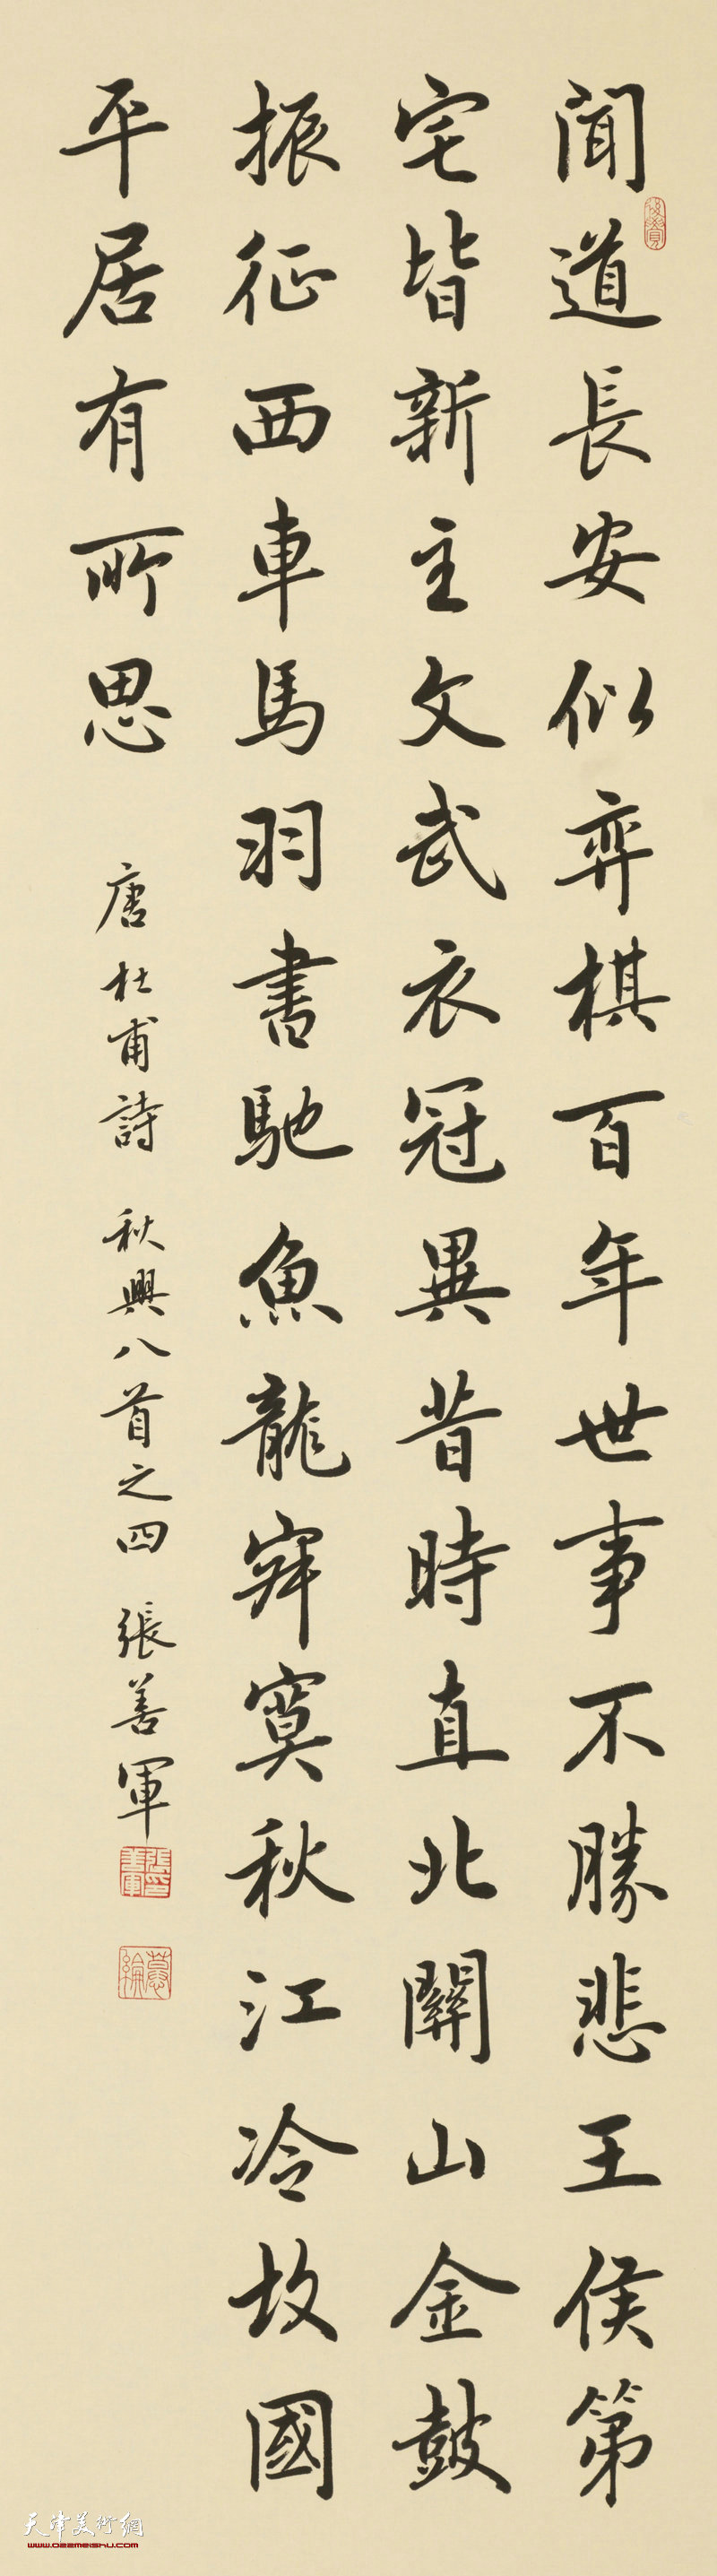 聞道長安似弈棋百年世事不勝悲王侯第
宅皆新主文武衣冠異昔時直北關山金鼓
振征西車馬羽書馳魚龍寂寞秋江冷故國
平居有所思
唐杜甫詩 秋興八首之四 張善軍
天津美術網